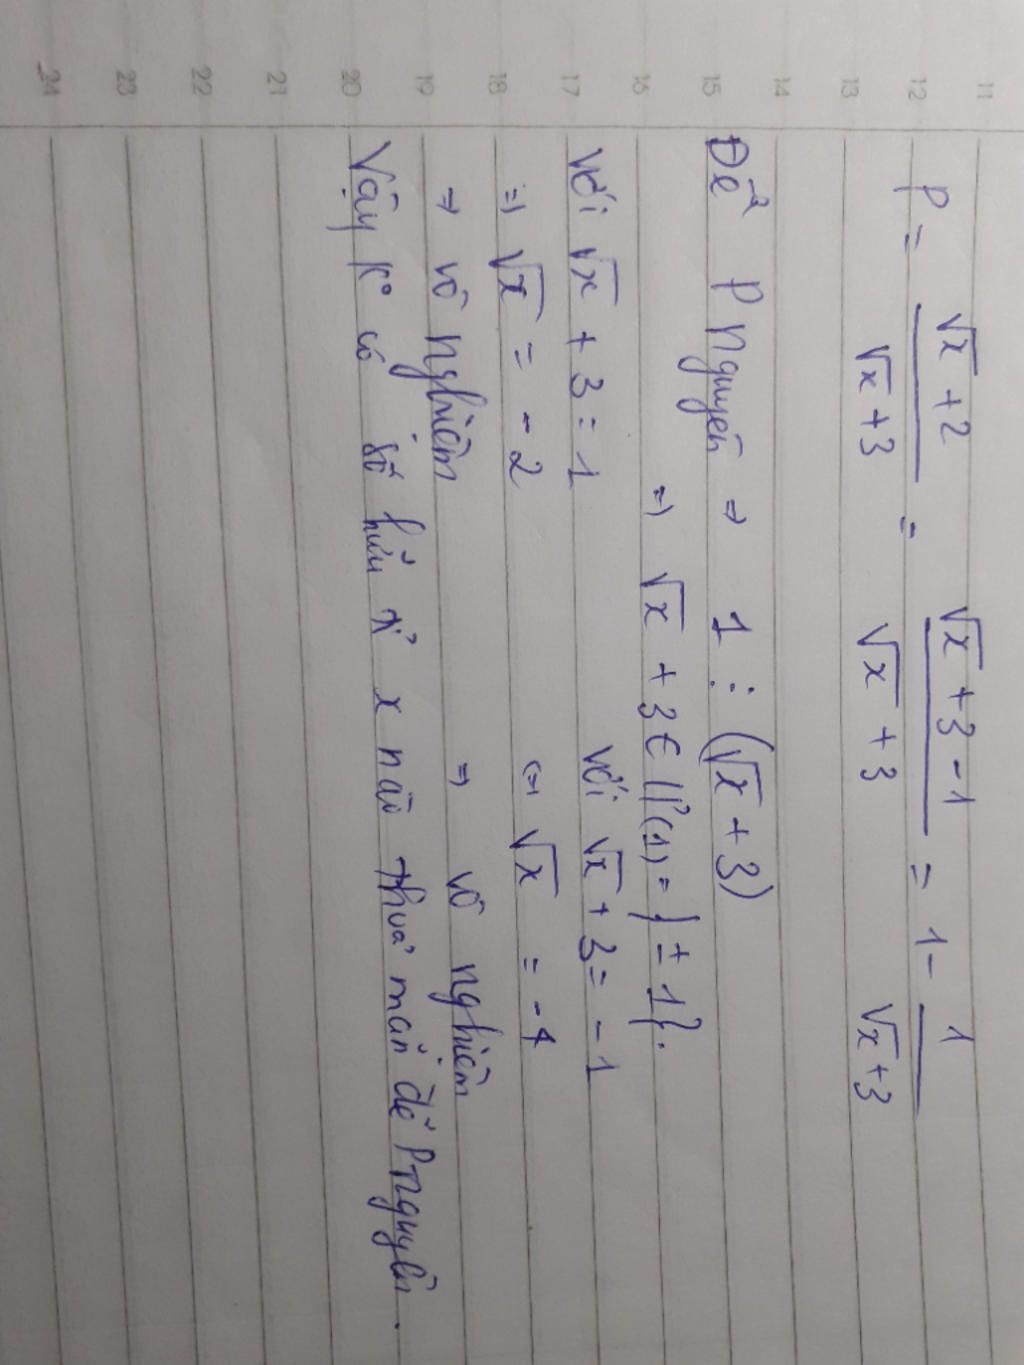 11 12 13 14 15 16 17 18 19 20 21 22 23 24
P = \frac{√x + 2}{√x + 3} = \frac{√x + 3 - 1}{√x + 3} = 1 - \frac{1}{√x + 3}
Để P nguyên ⇒ 1 ⋮ (√x + 3)
⇒ √x + 3 ∈ Ư(1) = {± 1}.
Với √x + 3 = 1 Với √x + 3 = - 1
⇒ √x = - 2 ⇔ √x = - 4
⇒ vô nghiệm ⇒ vô nghiệm
Vậy ko có số hữu tỉ x nào thoả mãn để P nguyên.